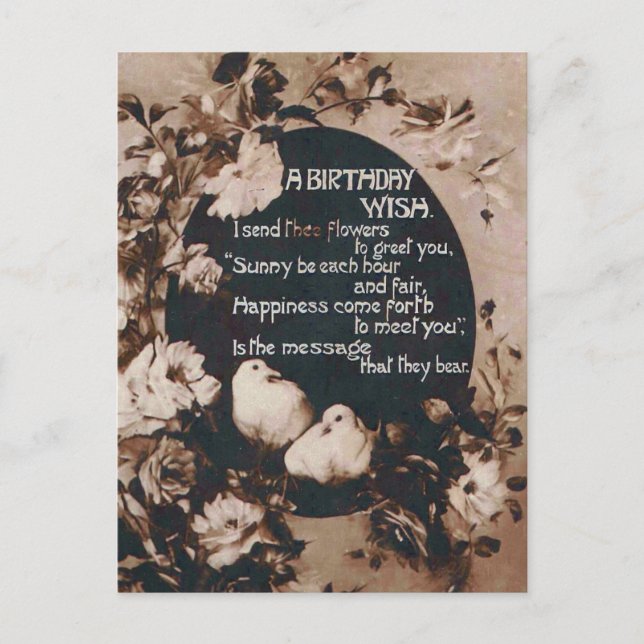 A BIRTHDAY
WISH.
I send thee flowers
to greet you,
"Sunny be each hour
and fair,
Happiness come forth
to meet you",
Is the message
that they bear.